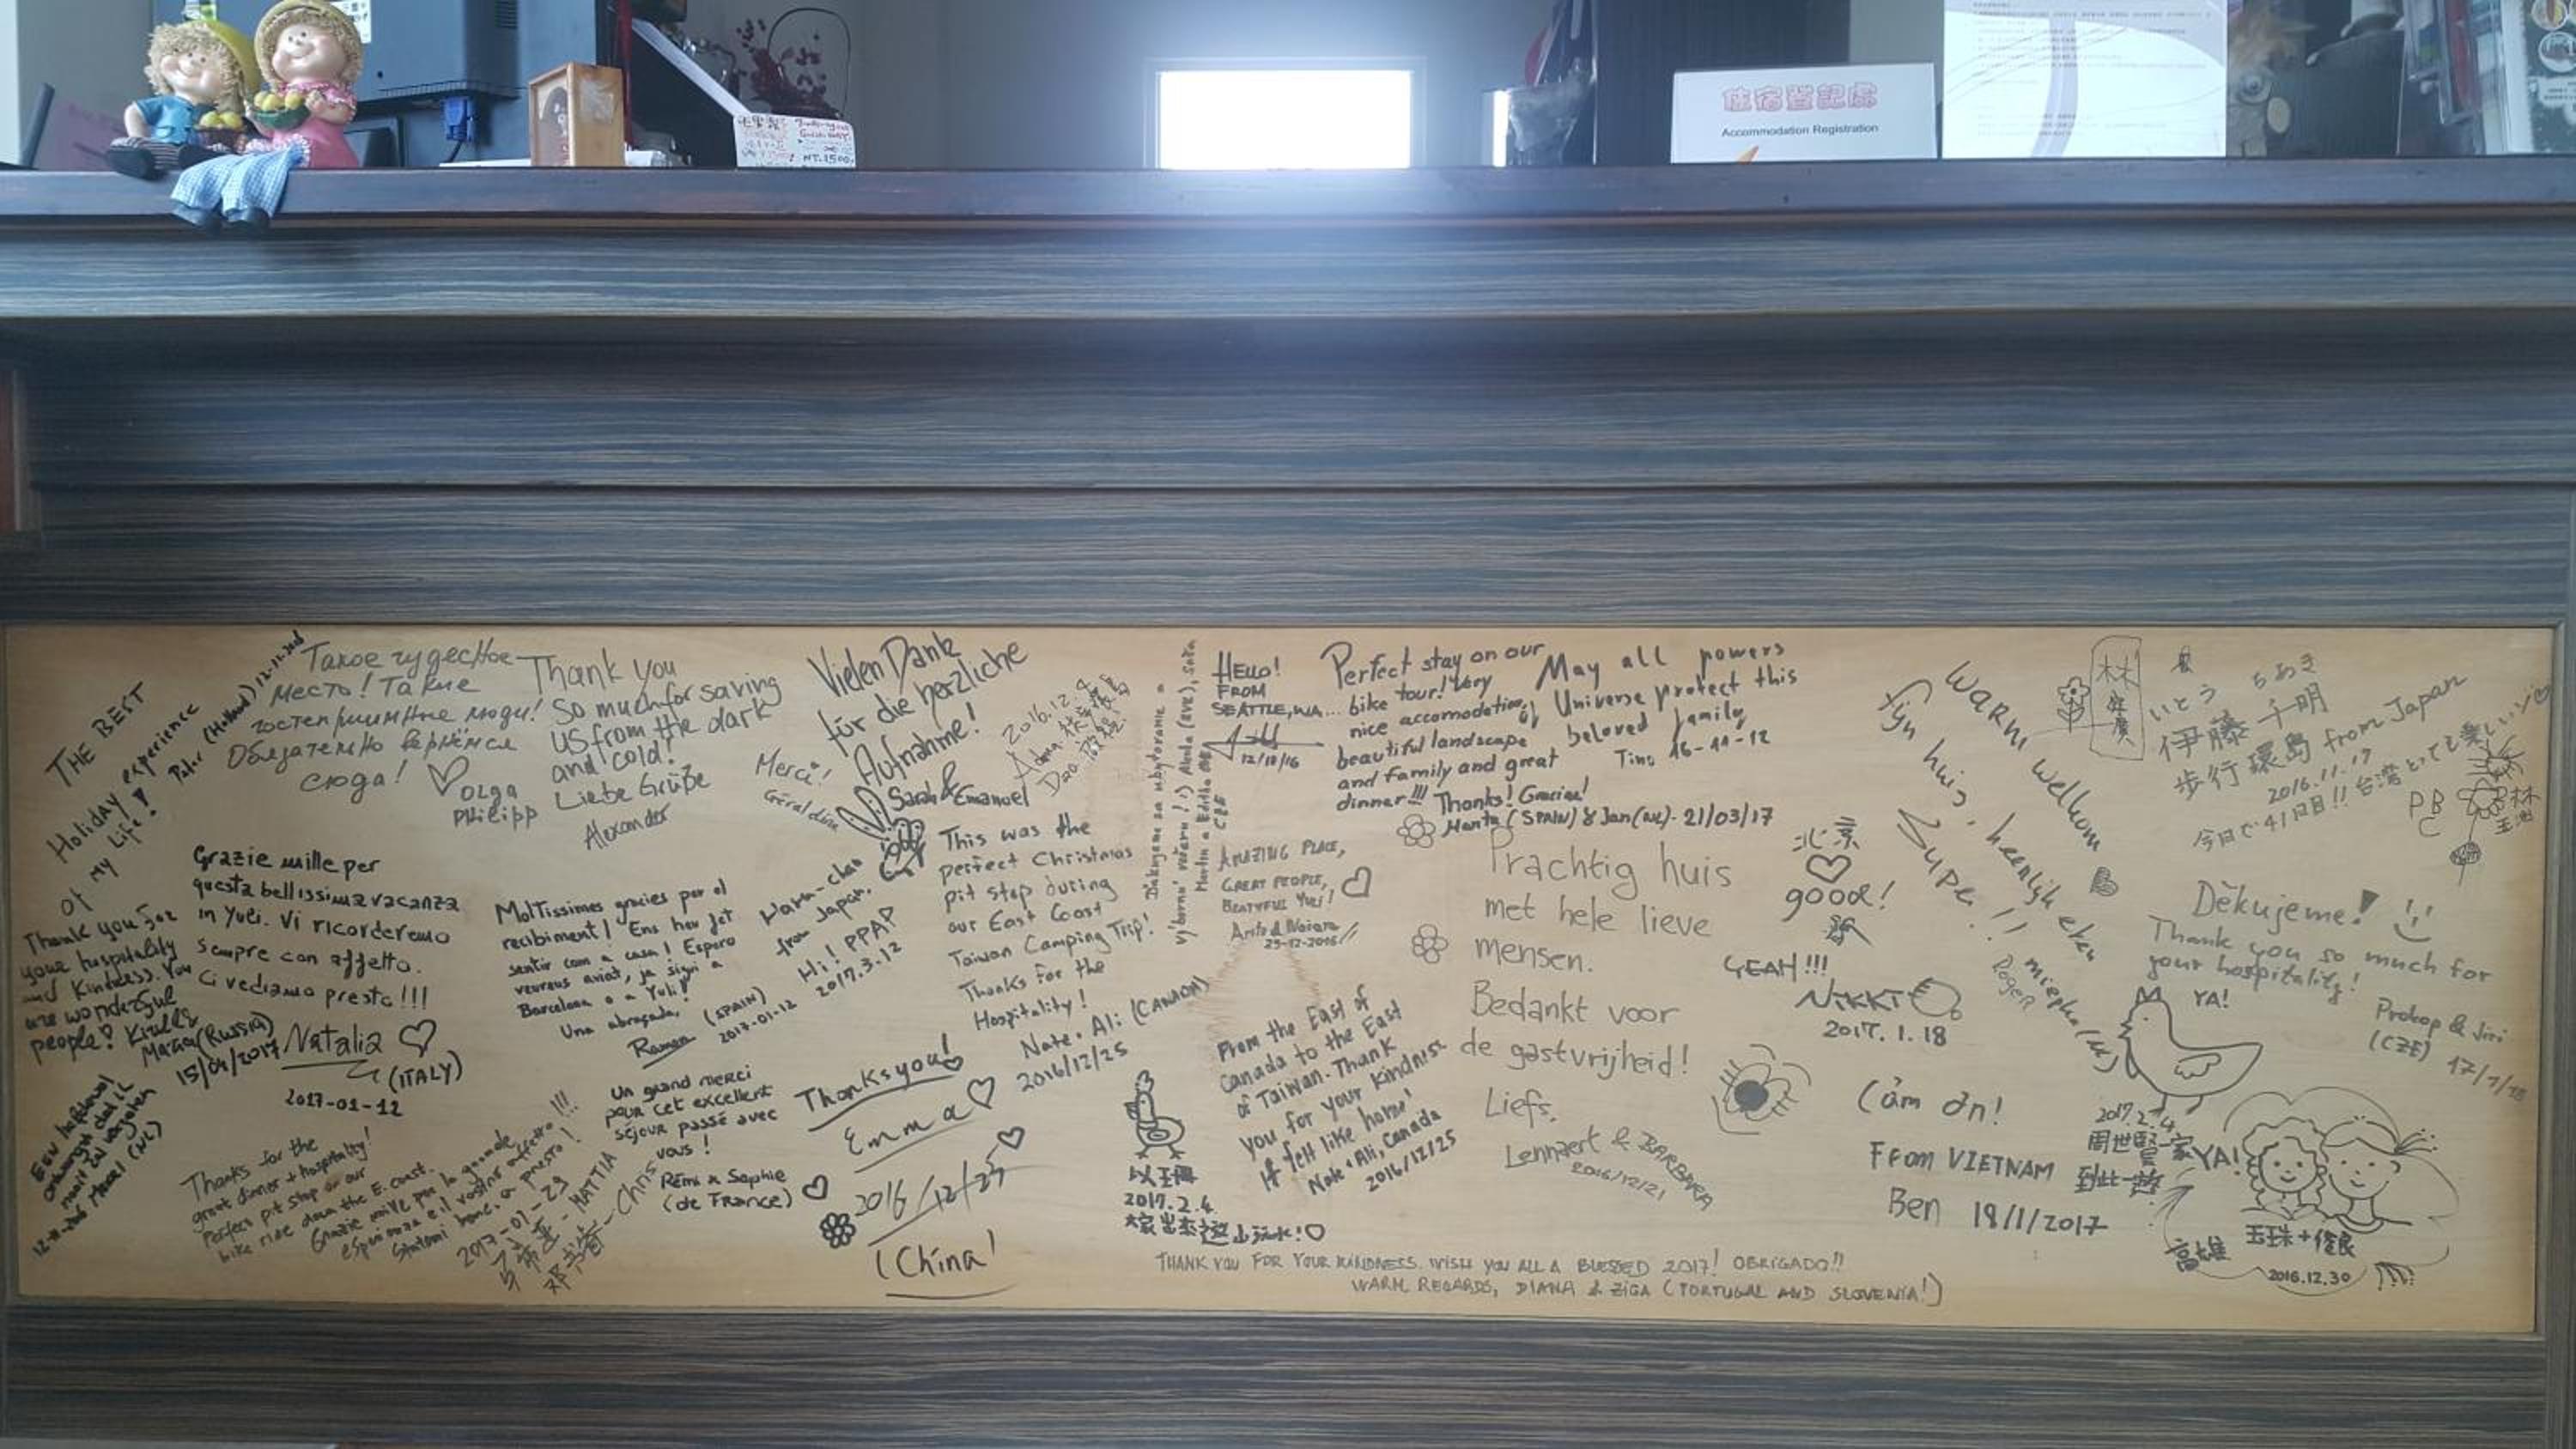 住宿登記處
Accommodation Registration
NT.1500
THE BEST
Holiday experience
of my Life!
Peter (Holland) 12-12-2016
Такое чудесное
место! Такие
гостеприимные люди!
Обязательно вернёмся
сюда!
Olga
Philipp
Thank you
so much for saving
us from the dark
and cold!
Liebe Grüße
Alexander
Vielen Dank
für die herzliche
Aufnahme!
Sarah & Emanuel
Merci!
Géraldine
2016.12.4
HELLO!
FROM
SEATTLE, WA...
12/10/16
Perfect stay on our
bike tour! Very
nice accomodation,
beautiful landscape
and family and great
dinner!!! Thanks! Gracias!
Marta (SPAIN) & Jan (NL) - 21/03/17
May all powers
of Universe protect this
beloved family
Tino 16-11-12
Warm welkom
fijn huis, heerlijk eten
Super!!
Roger
miepke (NL)
林
いとう ちあき
伊藤 千明
步行環島 from Japan
2016.11.17
今日で41日目!! 台湾とっても楽しい
PBC
Thank you for
your hospitality
and kindness. You
are wonderful
people! Kirill &
Maria (RUSSIA)
15/04/2017
Grazie mille per
questa bellissima vacanza
in Yuli. Vi ricorderemo
sempre con affetto.
Ci vediamo presto!!!
Natalia
(ITALY)
2017-01-12
Moltissimes gracies per el
recibiment! Ens heu fet
sentir com a casa! Espero
veureus aviat, ja sigui a
Barcelona o a Yuli!
Una abraçada,
Ramon (SPAIN)
2017-01-12
from Japan.
Hi! PPAP
2017.3.12
This was the
perfect Christmas
pit stop during
our East Coast
Taiwan Camping Trip!
Thanks for the
Hospitality!
Nate + Ali (CANADA)
2016/12/25
AMAZING PLACE,
GREAT PEOPLE,
BEAUTIFUL YULI!
25-12-2016
Prachtig huis
met hele lieve
mensen.
Bedankt voor
de gastvrijheid!
Liefs,
Lennaert & BARBARA
2016/12/21
北京
good!
YEAH!!!
NIKKI
2017.1.18
Děkujeme!
Thank you so much for
your hospitality!
Prokop & Jiri
(CZE) 17/1/18
YA!
Thanks for the
great dinner + hospitality!
Perfect pit stop on our
bike ride down the E. coast.
2017-01-29
MATTIA
Chris
Un grand merci
pour cet excellent
séjour passé avec
vous!
Rémi & Sophie
(de France)
Thanks you!
Emma
2016/12/23
(China)
2017.2.4.
From the East of
Canada to the East
of Taiwan. Thank
you for your kindness
It felt like home!
Nate + Ali, Canada
2016/12/25
Cảm ơn!
From VIETNAM
Ben 18/1/2017
2017.2.4.
周世賢一家
到此一遊
YA!
高雄
玉珠+俊良
2016.12.30
THANK YOU FOR YOUR KINDNESS. WISH YOU ALL A BLESSED 2017! OBRIGADO!!
WARM REGARDS, DIANA & ZIGA (PORTUGAL AND SLOVENIA!)